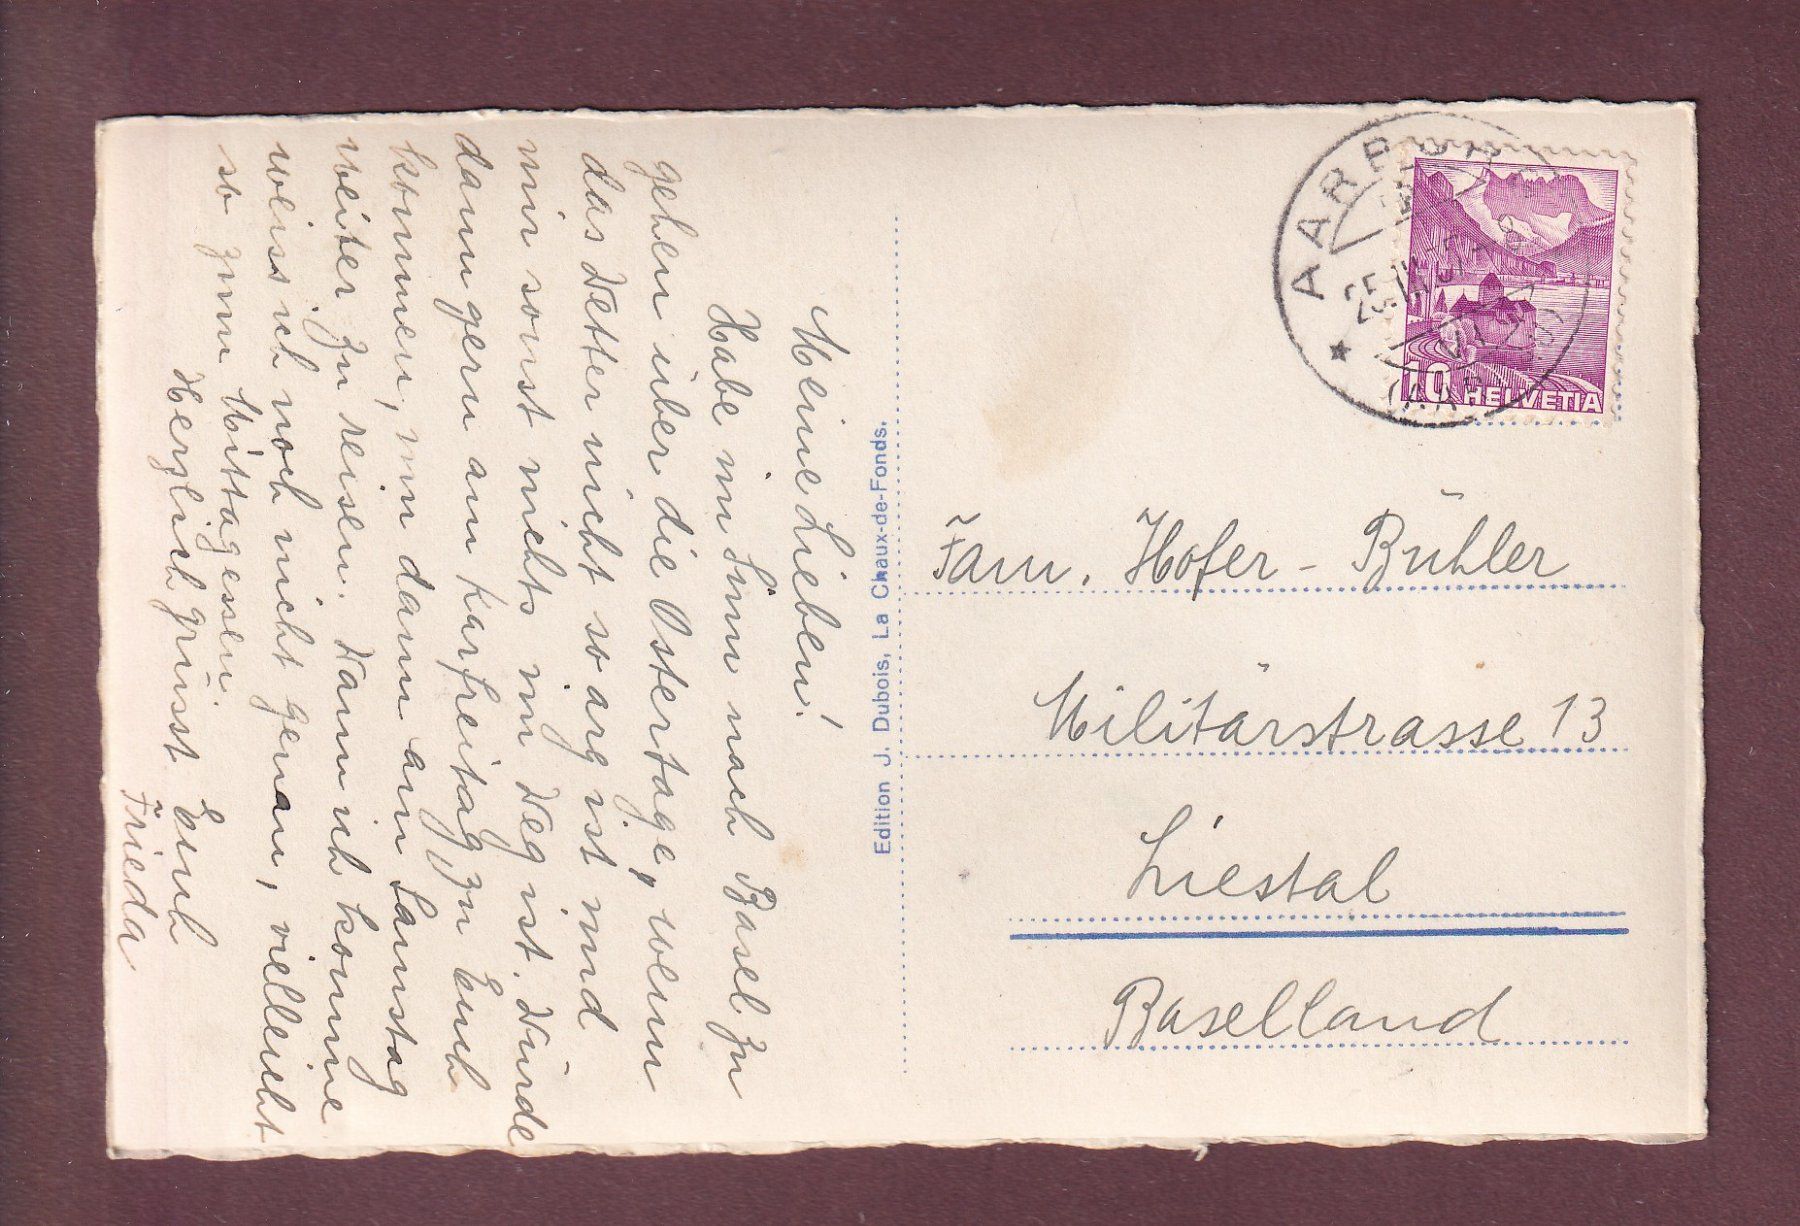 Meine Lieben!
Habe im Sinn nach Basel zu
gehen über die Ostertage, wenn
das Wetter nicht so arg ist und
mir sonst nichts im Weg ist. Würde
dann gern am Karfreitag zu Euch
kommen, um dann am Samstag
weiter zu reisen. Wann ich komme
weiss ich noch nicht genau, vielleicht
so zum Mittagessen.
Herzlich grüsst Euch
Frieda
Edition J. Dubois, La Chaux-de-Fonds.
AARBURG
10 HELVETIA
Fam. Hofer - Bühler
Militärstrasse 13
Liestal
Baselland